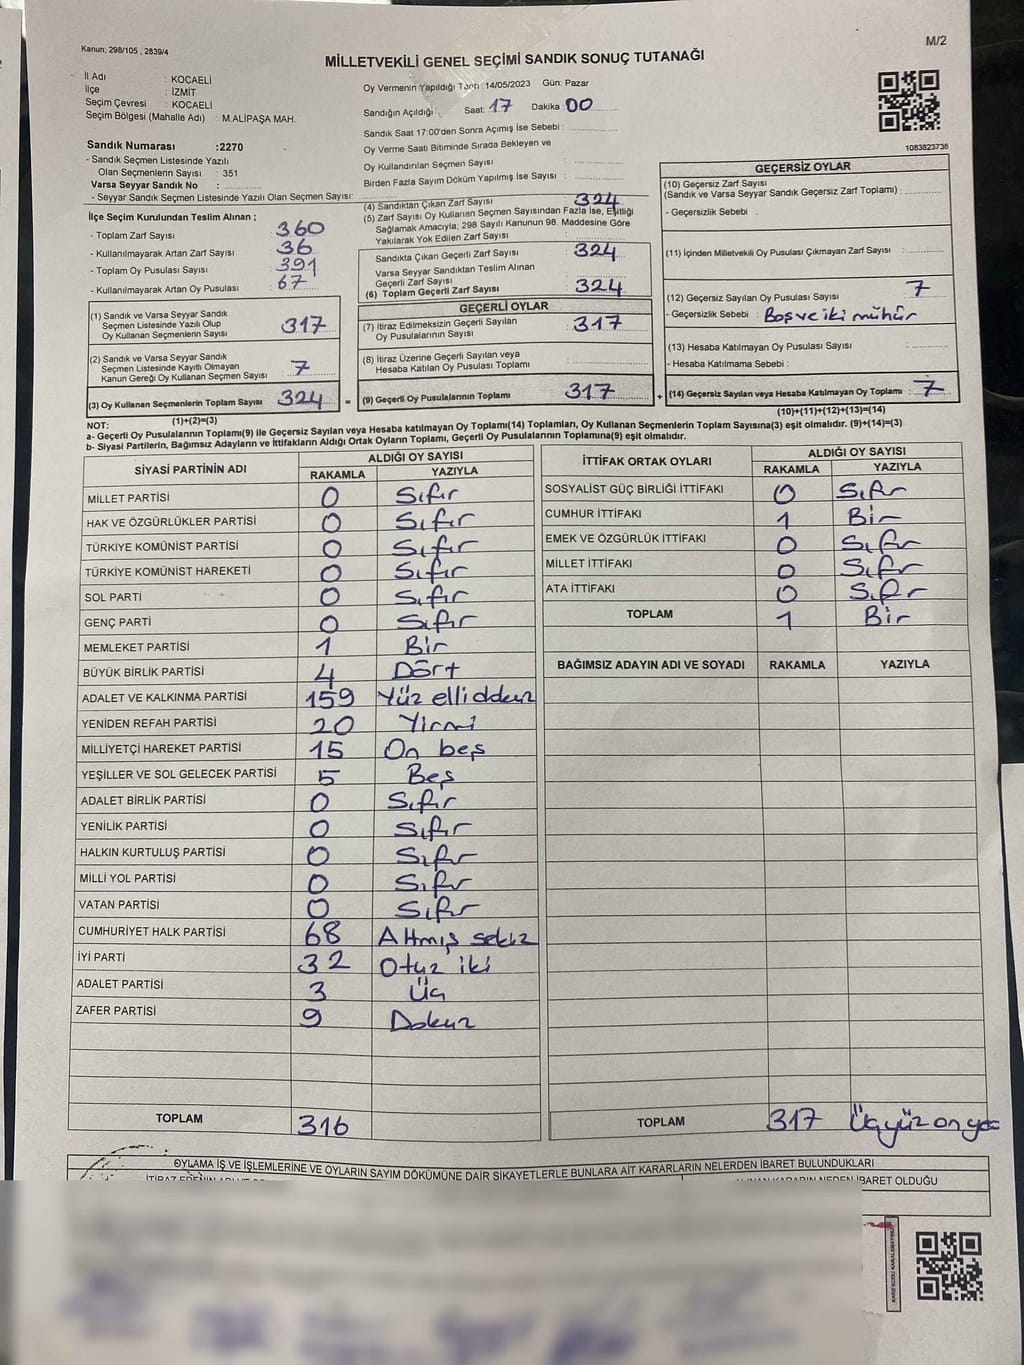 Kanun: 298/105 , 2839/4
M/2
MİLLETVEKİLİ GENEL SEÇİMİ SANDIK SONUÇ TUTANAĞI
İl Adı : KOCAELİ
İlçe : İZMİT
Seçim Çevresi : KOCAELİ
Seçim Bölgesi (Mahalle Adı) : M.ALİPAŞA MAH.
Sandık Numarası :2270
- Sandık Seçmen Listesinde Yazılı
Olan Seçmenlerin Sayısı : 351
Varsa Seyyar Sandık No :
- Seyyar Sandık Listesinde Yazılı Olan Seçmen Sayısı:
Oy Vermenin Yapıldığı Tarih :14/05/2023 Gün: Pazar
Sandığın Açıldığı Saat: 17 Dakika: 00
Sandık Saat 17:00'den Sonra Açılmış İse Sebebi :
Oy Verme Saati Bitiminde Sırada Bekleyen ve
Oy Kullandırılan Seçmen Sayısı :
Birden Fazla Sayım Döküm Yapılmış İse Sayısı :
1083823736
İlçe Seçim Kurulundan Teslim Alınan ;
- Toplam Zarf Sayısı : 360
- Kullanılmayarak Artan Zarf Sayısı : 36
- Toplam Oy Pusulası Sayısı : 391
- Kullanılmayarak Artan Oy Pusulası : 67
(1) Sandık ve Varsa Seyyar Sandık
Seçmen Listesinde Yazılı Olup
Oy Kullanan Seçmenlerin Sayısı : 317
(2) Sandık ve Varsa Seyyar Sandık
Seçmen Listesinde Kayıtlı Olmayan
Kanun Gereği Oy Kullanan Seçmen Sayısı : 7
(3) Oy Kullanan Seçmenlerin Toplam Sayısı : 324
(1)+(2)=(3)
(4) Sandıktan Çıkan Zarf Sayısı : 324
(5) Zarf Sayısı Oy Kullanan Seçmen Sayısından Fazla İse, Eşitliği
Sağlamak Amacıyla; 298 Sayılı Kanunun 98. Maddesine Göre
Yakılarak Yok Edilen Zarf Sayısı :
Sandıkta Çıkan Geçerli Zarf Sayısı : 324
Varsa Seyyar Sandıktan Teslim Alınan
Geçerli Zarf Sayısı :
(6) Toplam Geçerli Zarf Sayısı : 324
GEÇERLİ OYLAR
(7) İtiraz Edilmeksizin Geçerli Sayılan
Oy Pusulalarının Sayısı : 317
(8) İtiraz Üzerine Geçerli Sayılan veya
Hesaba Katılan Oy Pusulası Toplamı :
= (9) Geçerli Oy Pusulalarının Toplamı : 317
GEÇERSİZ OYLAR
(10) Geçersiz Zarf Sayısı
(Sandık ve Varsa Seyyar Sandık Geçersiz Zarf Toplamı) :
- Geçersizlik Sebebi :
(11) İçinden Milletvekili Oy Pusulası Çıkmayan Zarf Sayısı :
(12) Geçersiz Sayılan Oy Pusulası Sayısı : 7
- Geçersizlik Sebebi : Boş ve iki mühür
(13) Hesaba Katılmayan Oy Pusulası Sayısı :
- Hesaba Katılmama Sebebi :
+ (14) Geçersiz Sayılan veya Hesaba Katılmayan Oy Toplamı : 7
(10)+(11)+(12)+(13)=(14)
NOT:
a- Geçerli Oy Pusulalarının Toplamı(9) ile Geçersiz Sayılan veya Hesaba katılmayan Oy Toplamı(14) Toplamları, Oy Kullanan Seçmenlerin Toplam Sayısına(3) eşit olmalıdır. (9)+(14)=(3)
b- Siyasi Partilerin, Bağımsız Adayların ve İttifakların Aldığı Ortak Oyların Toplamı, Geçerli Oy Pusulalarının Toplamına(9) eşit olmalıdır.
SİYASİ PARTİNİN ADI ALDIĞI OY SAYISI
RAKAMLA YAZIYLA
MİLLET PARTİSİ 0 Sıfır
HAK VE ÖZGÜRLÜKLER PARTİSİ 0 Sıfır
TÜRKİYE KOMÜNİST PARTİSİ 0 Sıfır
TÜRKİYE KOMÜNİST HAREKETİ 0 Sıfır
SOL PARTİ 0 Sıfır
GENÇ PARTİ 0 Sıfır
MEMLEKET PARTİSİ 1 Bir
BÜYÜK BİRLİK PARTİSİ 4 Dört
ADALET VE KALKINMA PARTİSİ 159 Yüz ellidokuz
YENİDEN REFAH PARTİSİ 20 Yirmi
MİLLİYETÇİ HAREKET PARTİSİ 15 On beş
YEŞİLLER VE SOL GELECEK PARTİSİ 5 Beş
ADALET BİRLİK PARTİSİ 0 Sıfır
YENİLİK PARTİSİ 0 Sıfır
HALKIN KURTULUŞ PARTİSİ 0 Sıfır
MİLLİ YOL PARTİSİ 0 Sıfır
VATAN PARTİSİ 0 Sıfır
CUMHURİYET HALK PARTİSİ 68 Altmış sekiz
İYİ PARTİ 32 Otuz iki
ADALET PARTİSİ 3 Üç
ZAFER PARTİSİ 9 Dokuz
TOPLAM 316
İTTİFAK ORTAK OYLARI ALDIĞI OY SAYISI
RAKAMLA YAZIYLA
SOSYALİST GÜÇ BİRLİĞİ İTTİFAKI 0 Sıfır
CUMHUR İTTİFAKI 1 Bir
EMEK VE ÖZGÜRLÜK İTTİFAKI 0 Sıfır
MİLLET İTTİFAKI 0 Sıfır
ATA İTTİFAKI 0 Sıfır
TOPLAM 1 Bir
BAĞIMSIZ ADAYIN ADI VE SOYADI RAKAMLA YAZIYLA
TOPLAM 317 Üçyüz on yedi
OYLAMA İŞ VE İŞLEMLERİNE VE OYLARIN SAYIM DÖKÜMÜNE DAİR ŞİKAYETLERLE BUNLARA AİT KARARLARIN NELERDEN İBARET BULUNDUKLARI